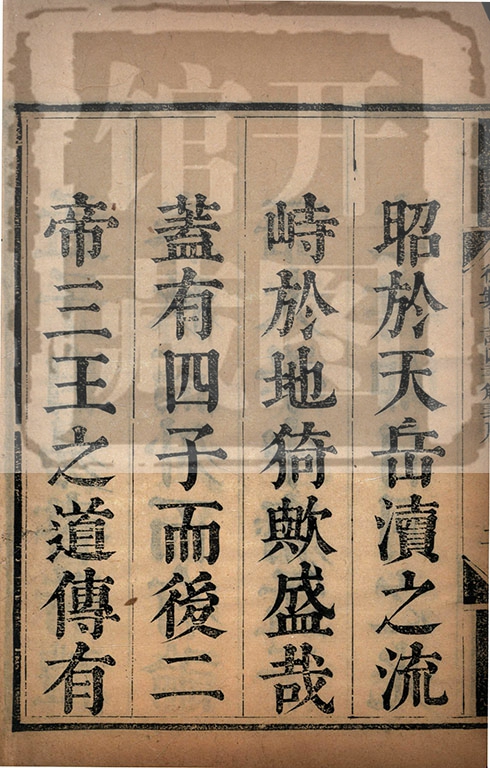 昭於天岳瀆之流
峙於地猗歟盛哉
蓋有四子而後二
帝三王之道傳有
開館
藏圖